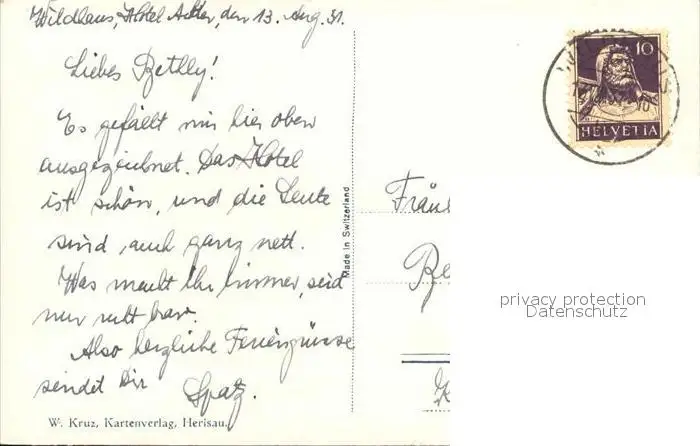 Wildhaus, Hotel Acker, den 13. Aug. 31.
Liebes Bethly!
Es gefällt mir hier oben
ausgezeichnet. Das Hotel
ist schön, und die Leute
sind auch ganz nett.
Was macht Ihr immer, seid
nur recht brav.
Also herzliche Feriengrüsse
sendet Dir Spatz.
W. Kruz, Kartenverlag, Herisau.
Made in Switzerland
10
HELVETIA
Fräul
Be
K
privacy protection
Datenschutz